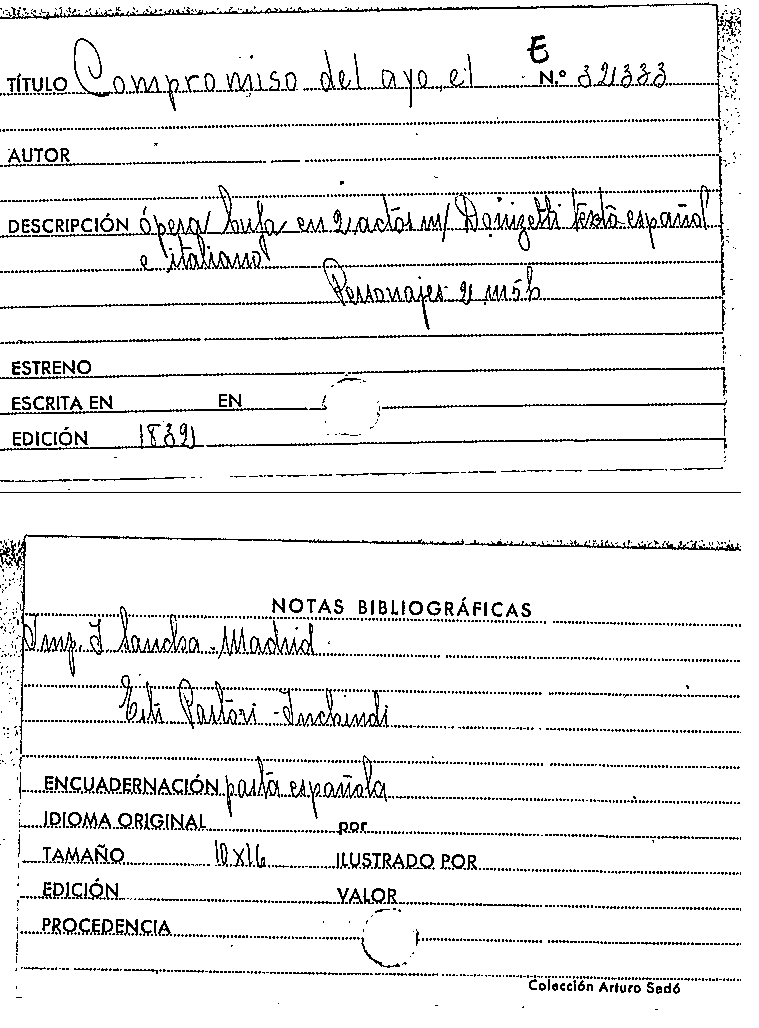 E
TÍTULO Compromiso del ayo, el N.º 32333
AUTOR
DESCRIPCIÓN ópera bufa en 2 actos m/ Donizetti texto español
e italiano
Personajes 2 m 5 h
ESTRENO
ESCRITA EN EN
EDICIÓN 1832
NOTAS BIBLIOGRÁFICAS
Imp. I Sancha. Madrid
Pastori - Inchindi
ENCUADERNACIÓN pasta española
IDIOMA ORIGINAL por
TAMAÑO 10x16 ILUSTRADO POR
EDICIÓN VALOR
PROCEDENCIA
Colección Arturo Sedó